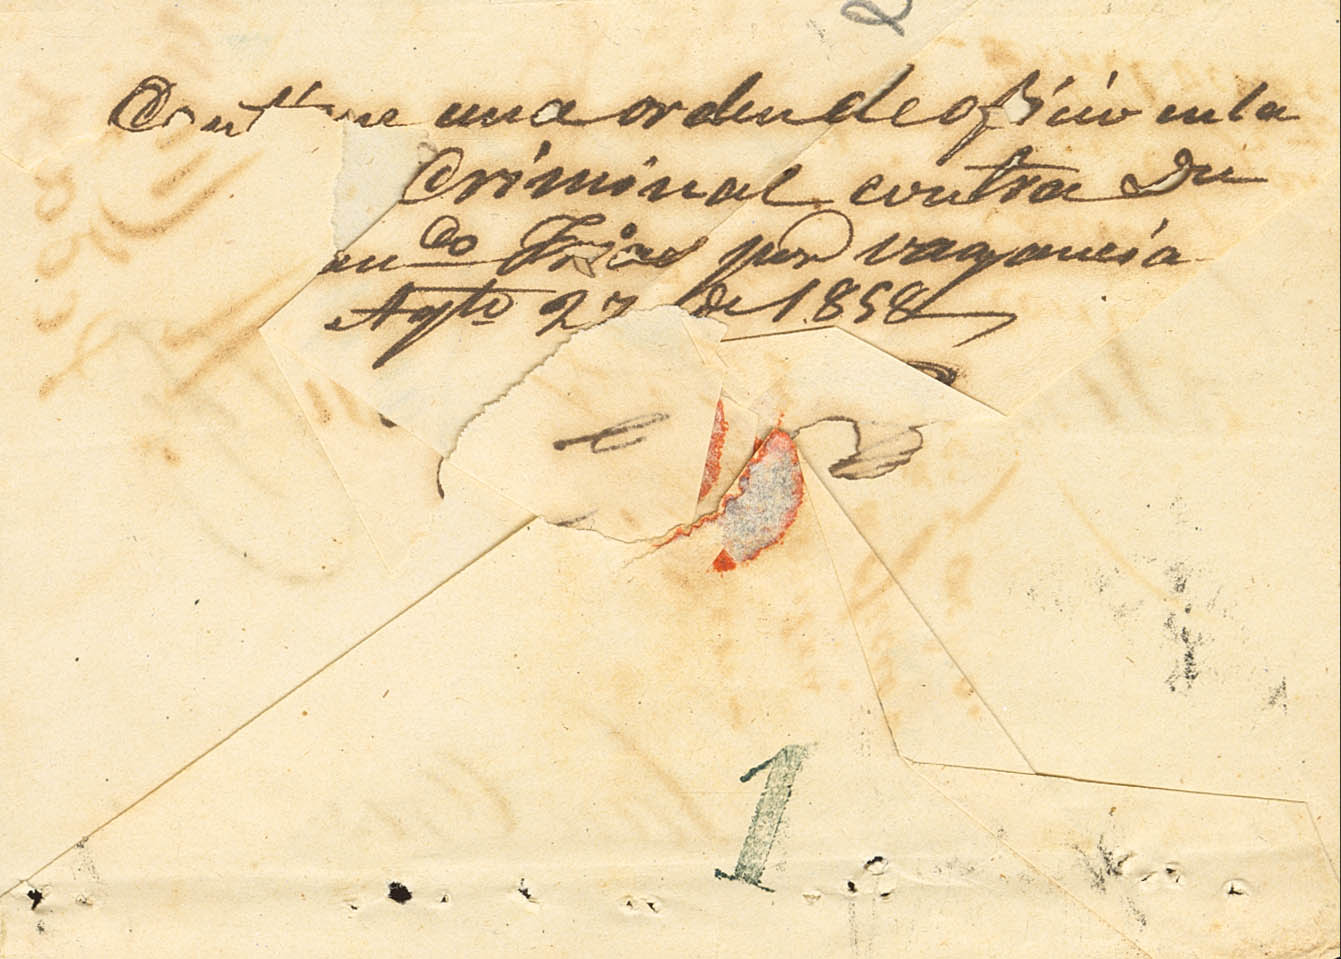 Contiene una orden de oficio en la
Criminal contra Du
an do Frias por vagancia
Agto 27 de 1858
1